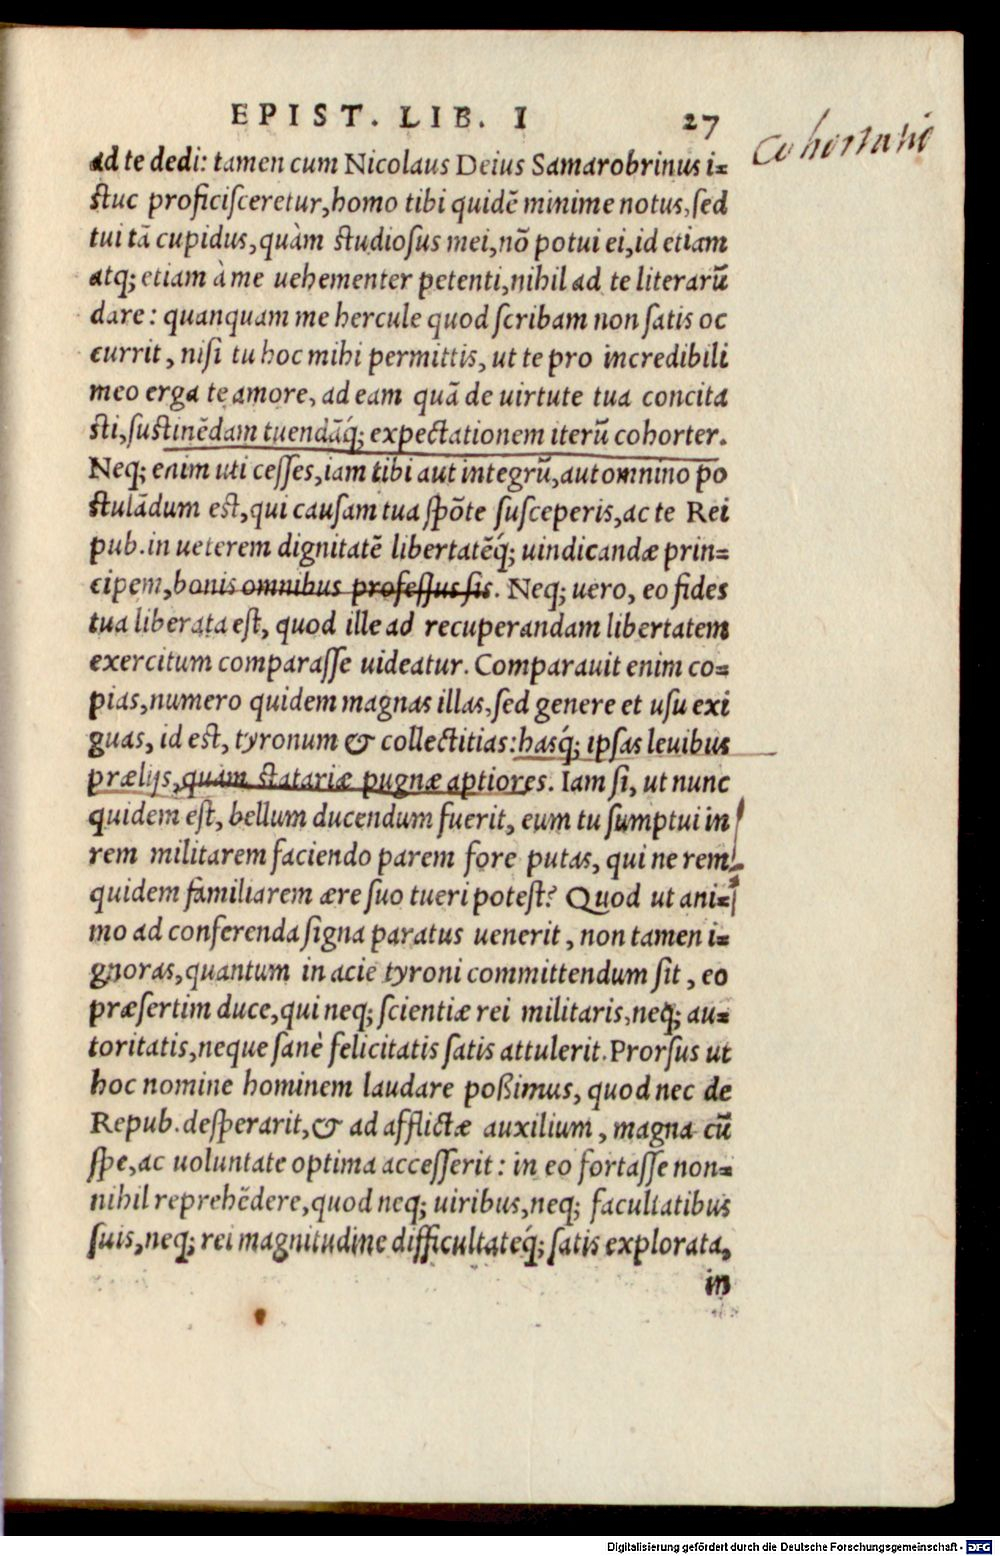 EPIST. LIB. I 27
Cohortatio
ad te dedi: tamen cum Nicolaus Deius Samarobrinus i=
ſtuc proficiſceretur, homo tibi quidē minime notus, ſed
tui tā cupidus, quàm ſtudioſus mei, nō potui ei, id etiam
atq; etiam à me uehementer petenti, nihil ad te literarū
dare: quanquam me hercule quod ſcribam non ſatis oc
currit, niſi tu hoc mihi permittis, ut te pro incredibili
meo erga te amore, ad eam quā de uirtute tua concita
ſti, ſuſtinēdam tuendāq́; expectationem iterū cohorter.
Neq; enim uti ceſſes, iam tibi aut integrū, aut omnino po
ſtulādum eſt, qui cauſam tua ſpōte ſuſceperis, ac te Rei
pub. in ueterem dignitatē libertatēq́; uindicandæ prin=
cipem, bonis omnibus profeſſus ſis. Neq; uero, eo fides
tua liberata eſt, quod ille ad recuperandam libertatem
exercitum comparaſſe uideatur. Comparauit enim co=
pias, numero quidem magnas illas, ſed genere et uſu exi
guas, id eſt, tyronum & collectitias: hasq́; ipſas leuibus
prælijs, quam ſtatariæ pugnæ aptiores. Iam ſi, ut nunc
quidem eſt, bellum ducendum fuerit, eum tu ſumptui in
rem militarem faciendo parem fore putas, qui ne rem
quidem familiarem ære ſuo tueri poteſt? Quod ut ani=
mo ad conferenda ſigna paratus uenerit, non tamen i=
gnoras, quantum in acie tyroni committendum ſit, eo
præſertim duce, qui neq; ſcientiæ rei militaris, neq; au=
toritatis, neque ſanè felicitatis ſatis attulerit. Prorſus ut
hoc nomine hominem laudare poßimus, quod nec de
Repub. deſperarit, & ad afflictæ auxilium, magna cū
ſpe, ac uoluntate optima acceſſerit: in eo fortaſſe non=
nihil reprehēdere, quod neq; uiribus, neq; facultatibus
ſuis, neq; rei magnitudine difficultateq́; ſatis explorata,
in
Digitalisierung gefördert durch die Deutsche Forschungsgemeinschaft - DFG